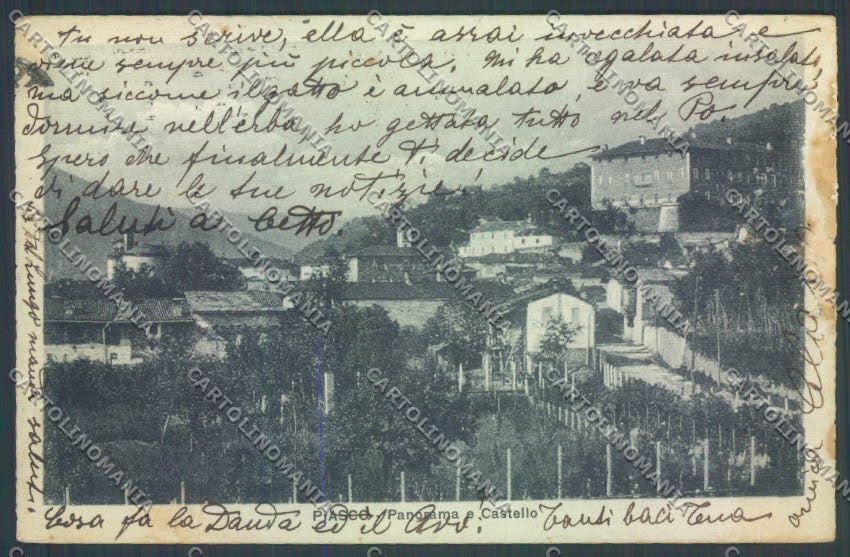 Tu non scrive, ella è assai invecchiata e
viene sempre più piccola. Mi ha egalata insalata,
ma siccome il gatto è ammalato, e va sempre
dormire nell'erba, ho gettata tutto nel Po.
Spero che finalmente ti decide
di dare le tue notizie!
Saluti a Cetto.
mando saluti
Cosa fa la Danda ed il Avv.
Tanti baci Tua
PIASCO - Panorama e Castello
CARTOLINOMANIA